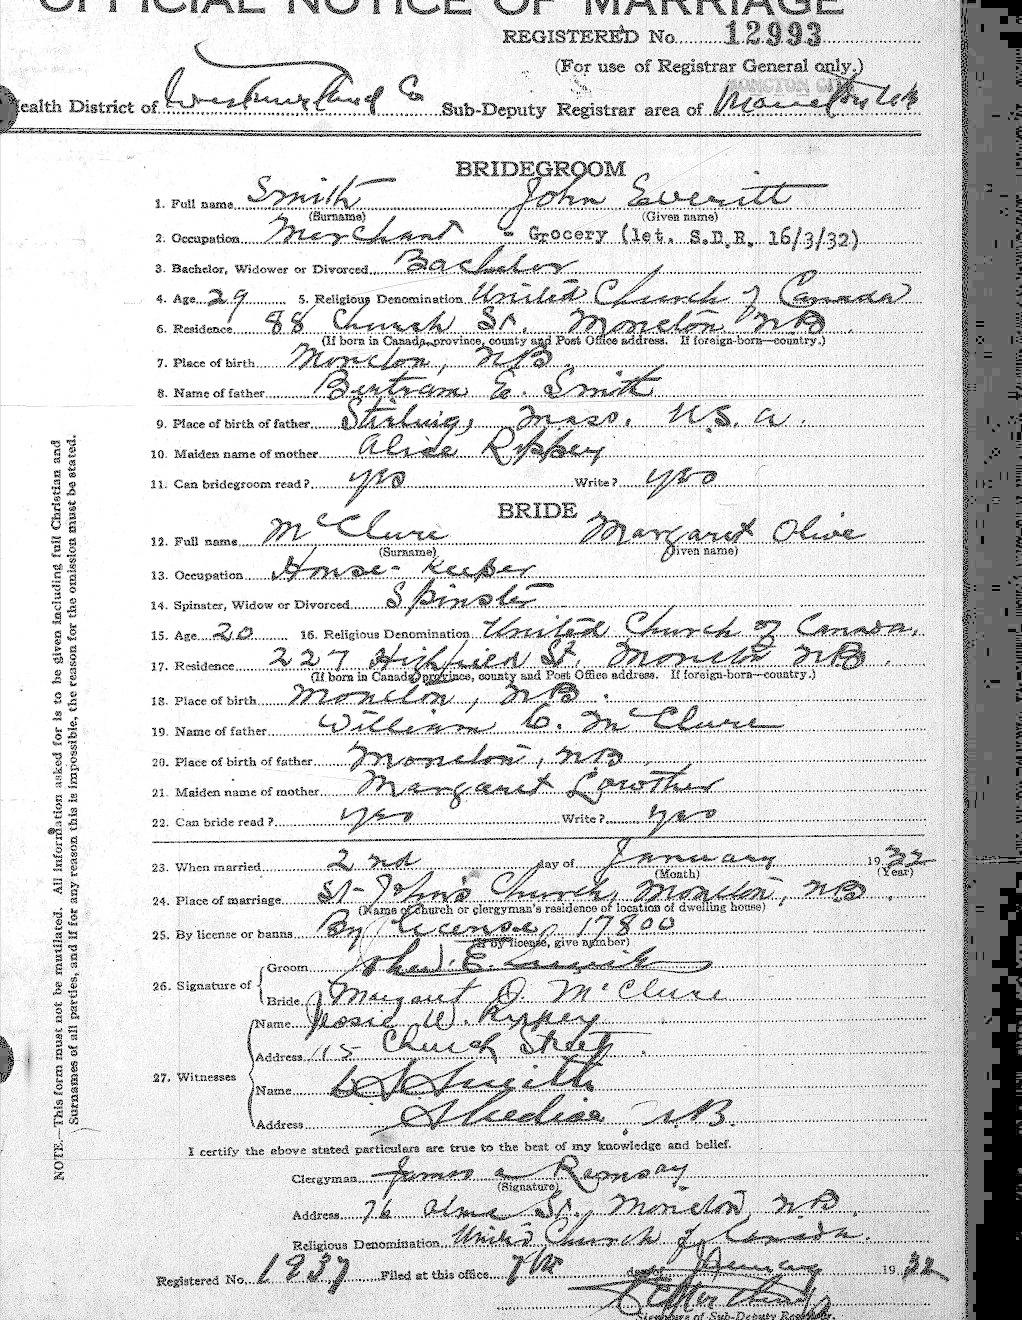 OFFICIAL NOTICE OF MARRIAGE
REGISTERED No. 12993
(For use of Registrar General only.)
MONCTON CITY
ealth District of Westmorland Co Sub-Deputy Registrar area of Moncton
BRIDEGROOM
1. Full name Smith John Everitt
(Surname) (Given name)
2. Occupation Merchant - Grocery (let. S.D.R. 16/3/32)
3. Bachelor, Widower or Divorced Bachelor
4. Age 29 5. Religious Denomination United Church of Canada
6. Residence 88 Church St. Moncton NB.
(If born in Canada, province, county and Post Office address. If foreign-born—country.)
7. Place of birth Moncton, NB
8. Name of father Bertram E. Smith
9. Place of birth of father Stirling, Mass. U.S.A.
10. Maiden name of mother Alice Rippey
11. Can bridegroom read? yes Write? yes
BRIDE
12. Full name McClure Margaret Olive
(Surname) (Given name)
13. Occupation House-keeper
14. Spinster, Widow or Divorced Spinster
15. Age 20 16. Religious Denomination United Church of Canada.
17. Residence 227 Highfield St. Moncton NB.
(If born in Canada, province, county and Post Office address. If foreign-born—country.)
18. Place of birth Moncton, NB.
19. Name of father William C. McClure
20. Place of birth of father Moncton, NB
21. Maiden name of mother Margaret Lowther
22. Can bride read? yes Write? yes
23. When married 2nd day of January 1932
(Month) (Year)
24. Place of marriage St-John's Church, Moncton, NB.
(Name of church or clergyman's residence of location of dwelling house)
25. By license or banns By license, 17800
(If by license, give number)
26. Signature of
Groom John E. Smith
Bride Margaret O. McClure
27. Witnesses
Name Jessie W. Rippey
Address 115 Church Street.
Name Smith
Address Shediac N.B.
I certify the above stated particulars are true to the best of my knowledge and belief.
Clergyman James A Ramsay
(Signature)
Address 76 Alma St., Moncton, NB.
Religious Denomination United Church of Canada.
Registered No. 1937 Filed at this office 7th day of January 1932
Signature of Sub-Deputy Registrar.
NOTE.—This form must not be mutilated. All information asked for is to be given including full Christian and
Surnames of all parties, and if for any reason this is impossible, the reason for the omission must be stated.